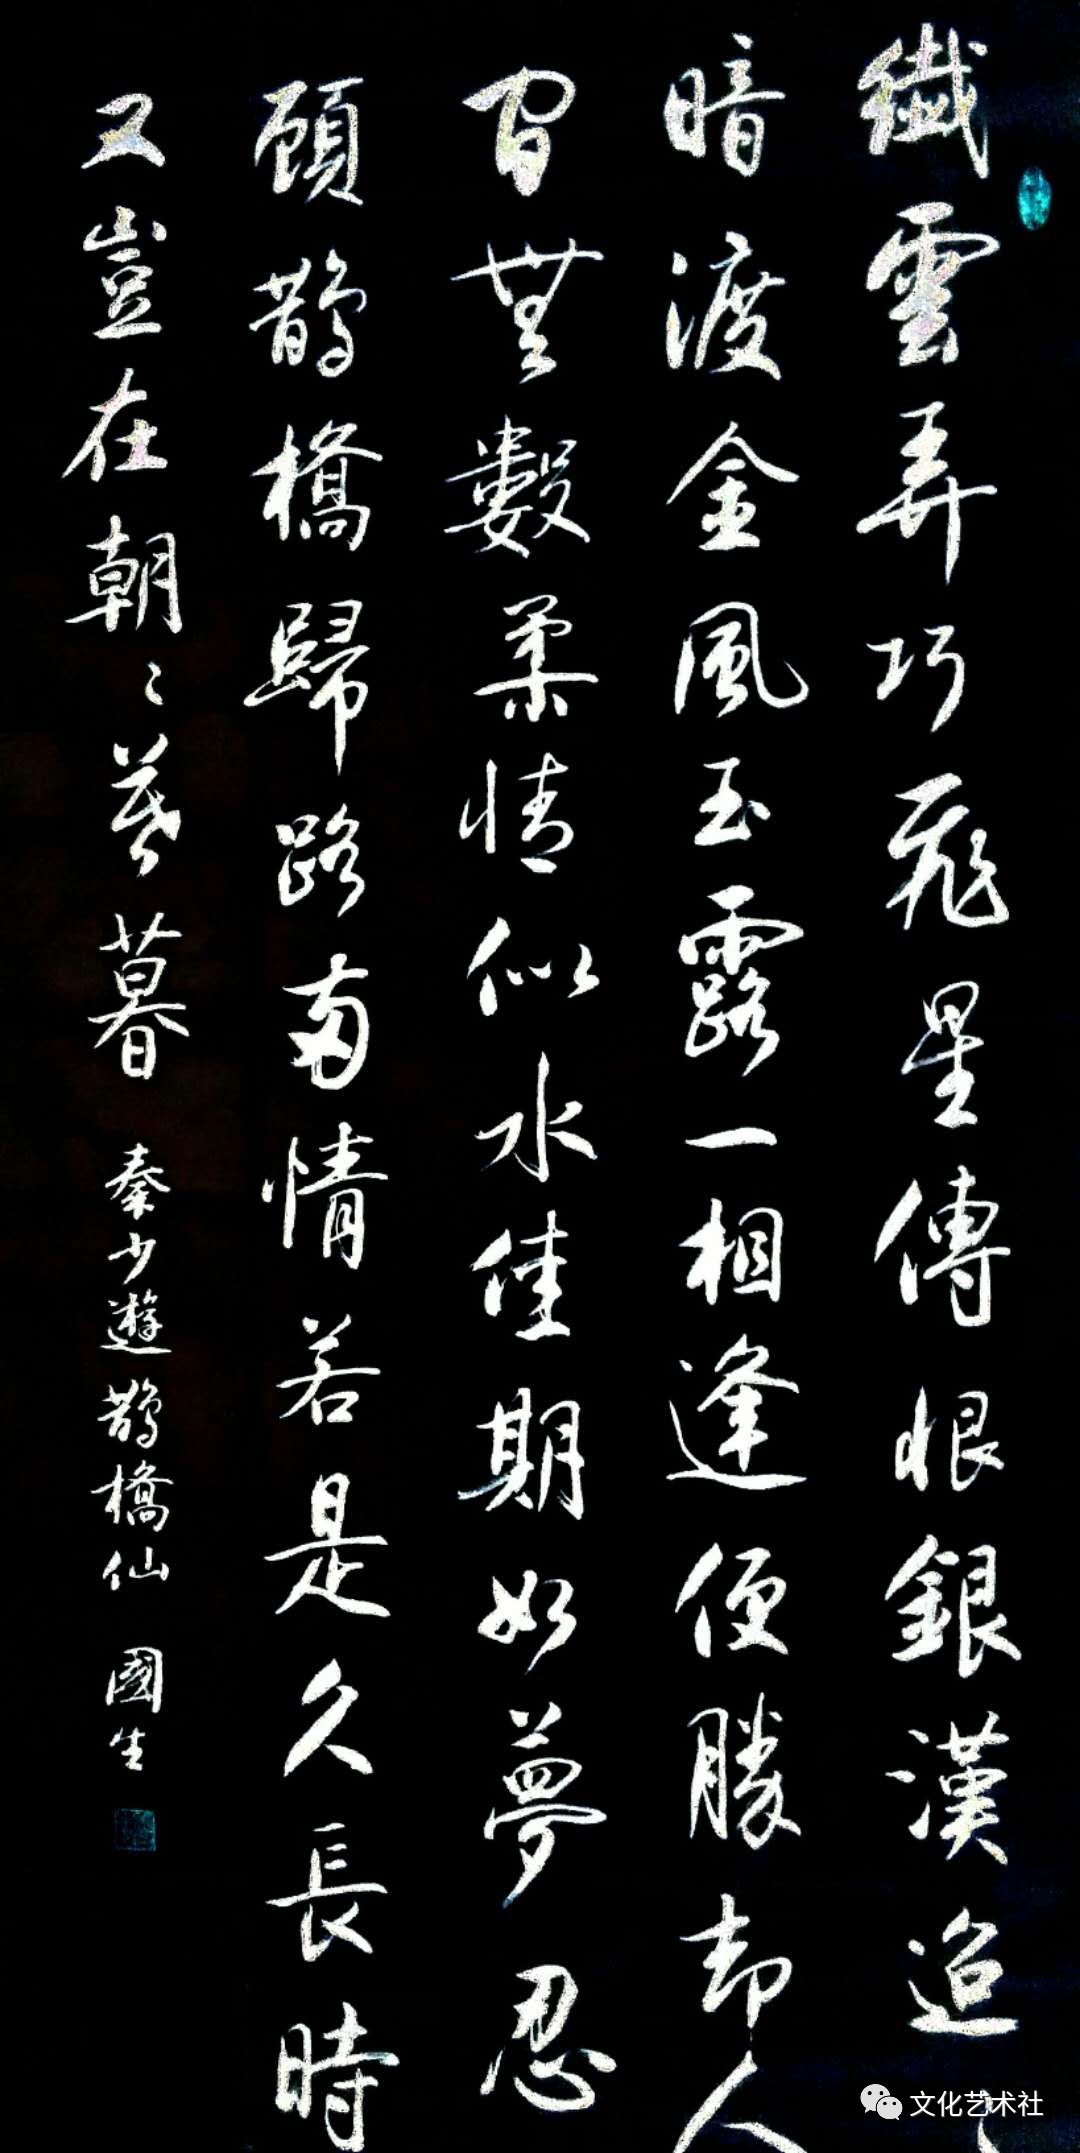 纖雲弄巧飛星傳恨銀漢迢〻
暗渡金風玉露一相逢便勝却人
間無數柔情似水佳期如夢忍
顧鵲橋歸路兩情若是久長時
又豈在朝〻暮暮
秦少遊鵲橋仙 國生
文化艺术社